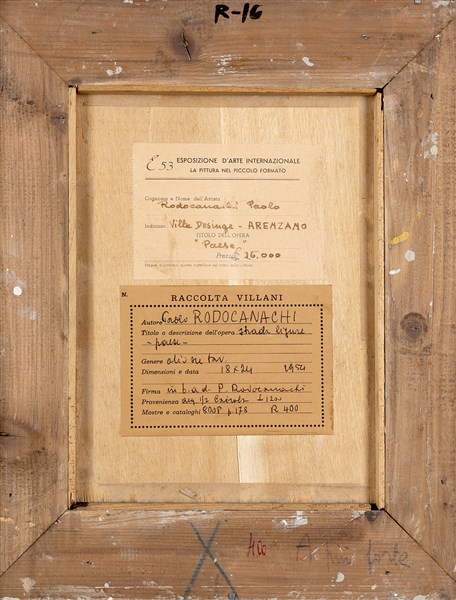 R-16
E 53 ESPOSIZIONE D'ARTE INTERNAZIONALE
LA PITTURA NEL PICCOLO FORMATO
Cognome e Nome dell'Artista
Rodocanachi Paolo
Indirizzo Villa Desinge - ARENZANO
TITOLO DELL'OPERA
"Paese"
Prezzo £ 25.000
N.
RACCOLTA VILLANI
Autore Paolo RODOCANACHI
Titolo o descrizione dell'opera strada ligure
- paese -
Genere olio su tav.
Dimensioni e data 18x24 1954
Firma in b. a d. P. Rodocanachi
Provenienza acq.
Mostre e cataloghi p. 178 R 400
400
A più forte